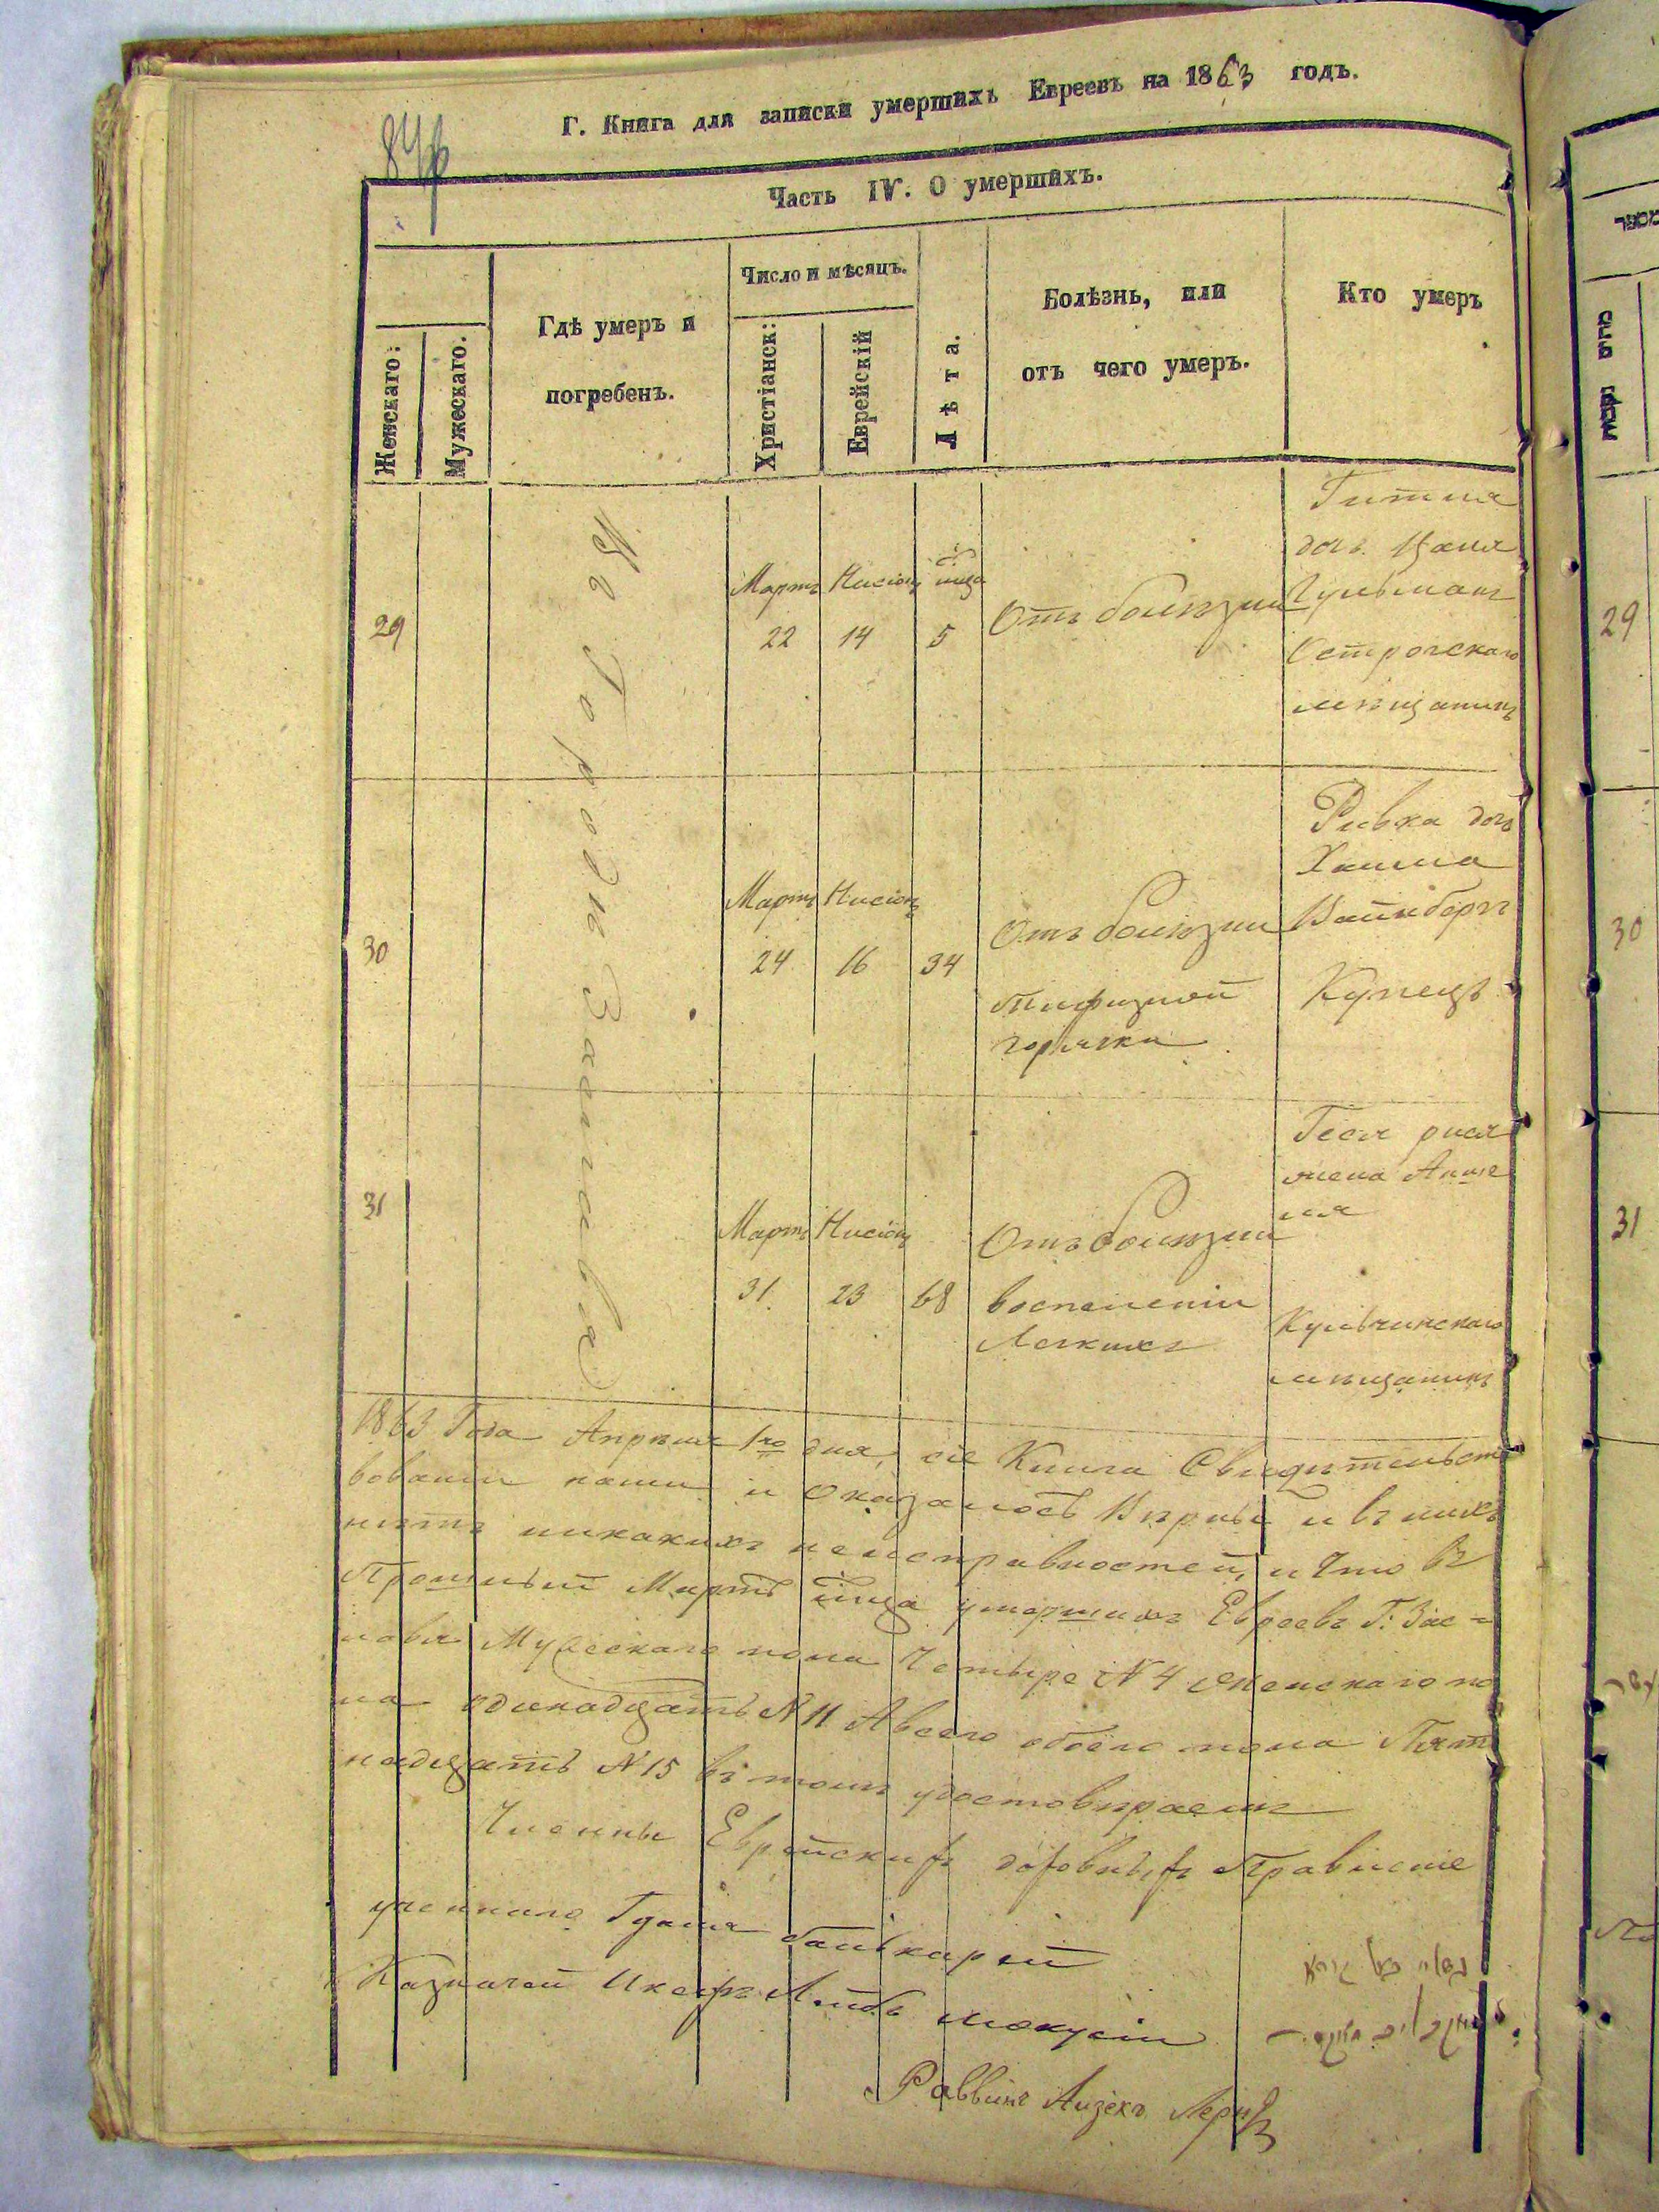 Г. Книга для записки умершихъ Евреевъ на 1863 годъ.
Часть IV. О умершихъ.
Женскаго:
Мужескаго.
Гдѣ умеръ и
погребенъ.
Число и мѣсяцъ.
Христіанск:
Еврейскій
Лѣта.
Болѣзнь, или
отъ чего умеръ.
Кто умеръ
Городѣ Заславлѣ
29
Мартъ
22
Нисіонъ
14
5
Отъ болѣзни
Гитля
дочь
Гульманъ
Острогскаго
мѣщанинъ
30
Мартъ
24
Нисіонъ
16
34
Отъ болѣзни
тифизной
горячки
Ривка дочь
Хаима
Вайнберга
Купецъ
31
Мартъ
31
Нисіонъ
23
68
Отъ болѣзни
воспаленіи
Легкихъ
Геся
жена Анше
ля
Кульчинскаго
мѣщанинъ
1863 Года Апрѣля 1го дня, сіе Книга Свидѣтельст
вованіи нами и оказалось Вѣрны и въ нихъ
нѣтъ никакихъ неисправностей, и что въ
Прошлый Мартъ мца умершихъ Евреевъ Г: Зас=
лавля Мужескаго пола Четыре №4 женскаго по
ла одинадцать №11 А всего обоего пола Пят
надцать №15 въ томъ удостовѣряемъ
Члены Еврейскихъ духовныхъ Правленіе
ученнаго
Казначей Лейбъ
Раввинъ Айзекъ
29
30
31